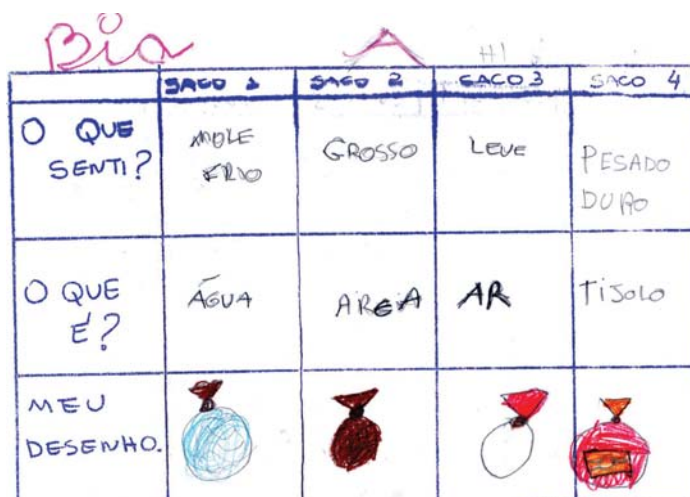 Bia A
SACO 1 SACO 2 SACO 3 SACO 4
O QUE SENTI?
MOLE
FRIO
GROSSO
LEVE
PESADO
DURO
O QUE É?
ÁGUA
AREIA
AR
TIJOLO
MEU
DESENHO.